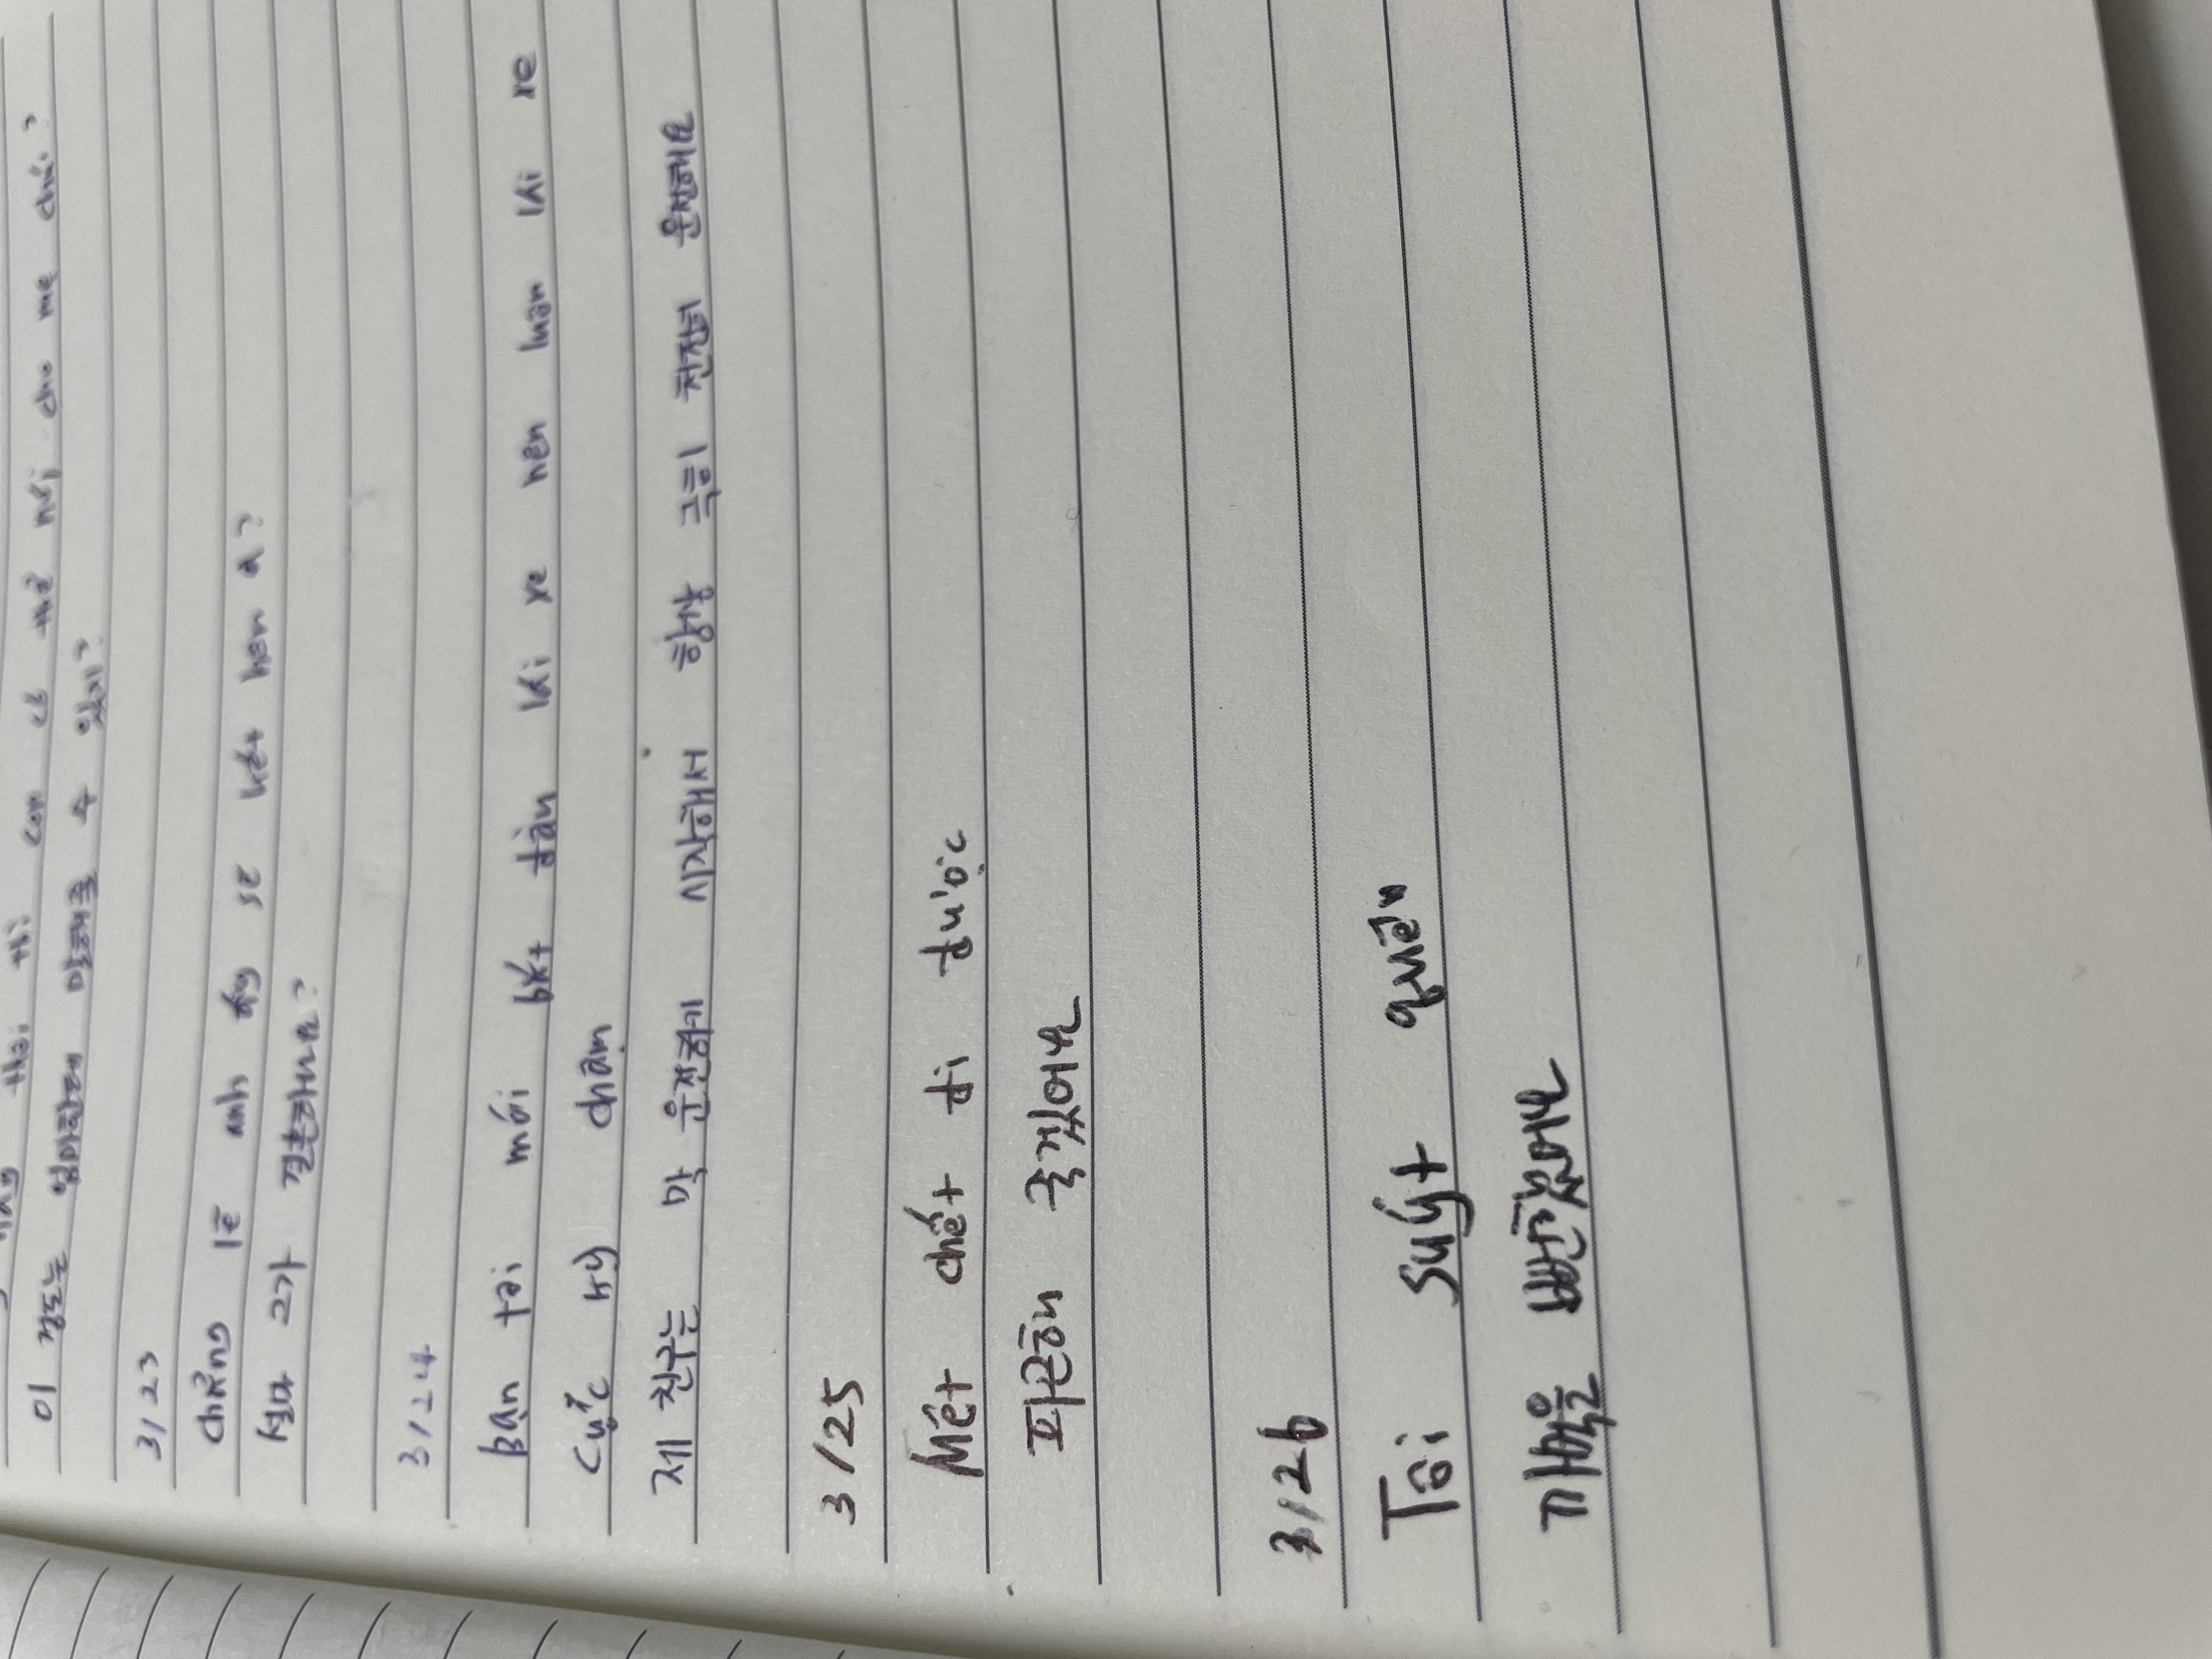 thôi thì con có thể nói cho mẹ chứ?
이 정도는 엄마한테 말해줄 수 있지?
3/23
chẳng lẽ anh ấy sẽ kết hôn à?
설마 그가 결혼하나요?
3/24
Bạn tôi mới bắt đầu lái xe nên luôn lái xe
cực kỳ chậm
제 친구는 막 운전하기 시작해서 항상 극히 천천히 운전해요
3/25
Mệt chết đi được
피곤해 죽겠어요
3/26
Tôi suýt quên
까먹을 뻔했어요